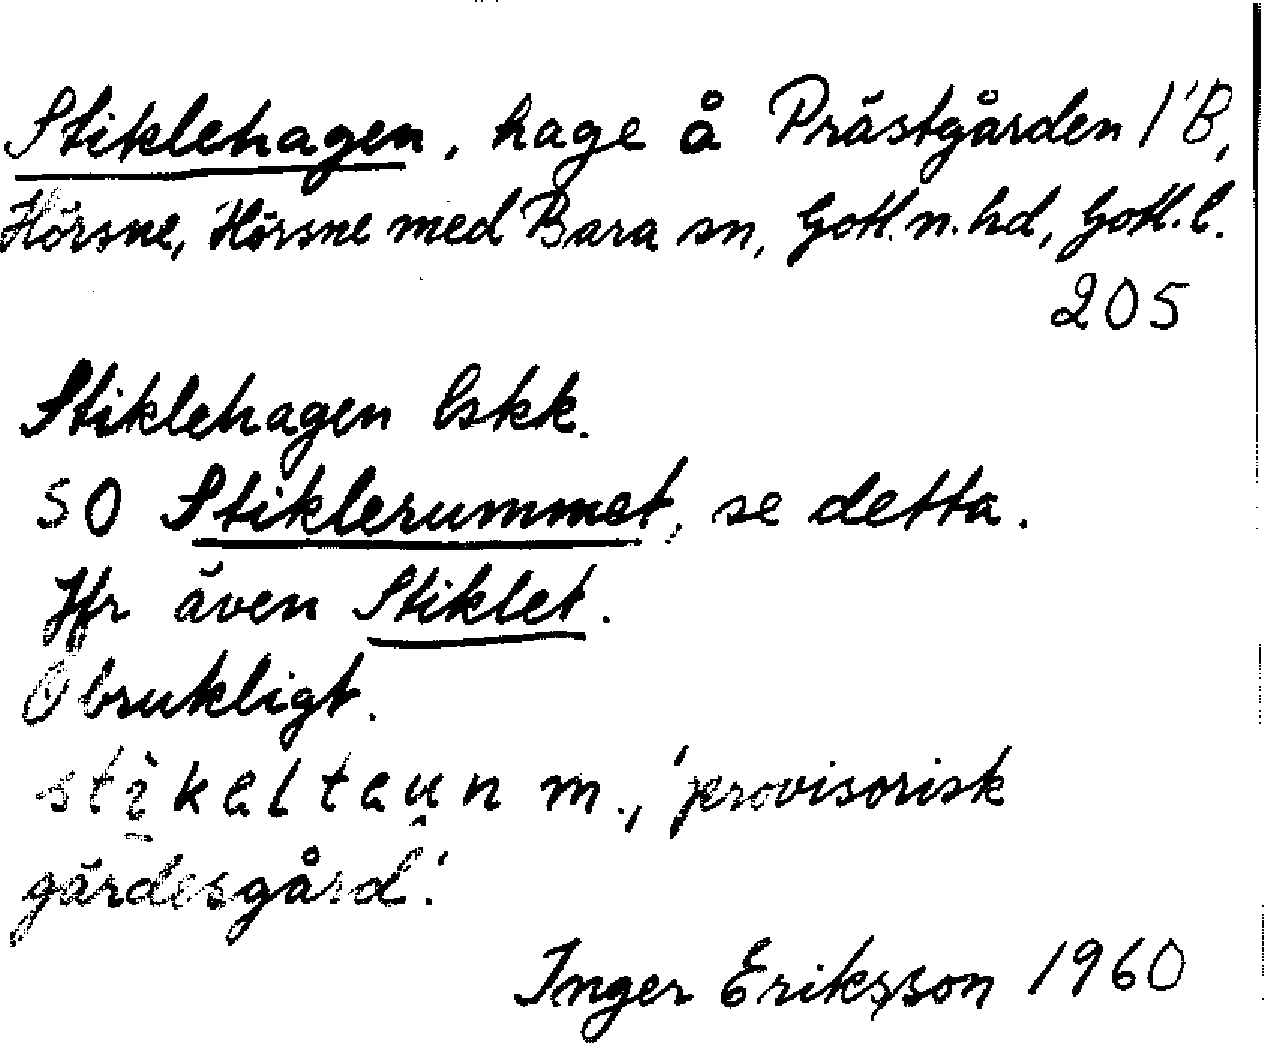 Stiklehagen, hage å Prästgården 1'B,
Hörsne, Hörsne med Bara sn, Gotl. n. hd, Gotl. l.
205
Stiklehagen Eskk.
SO Stiklerummet, se detta.
Jfr även Stiklet.
Obrukligt.
stikeltaun m., 'provisorisk
gärdesgård'.
Inger Eriksson 1960